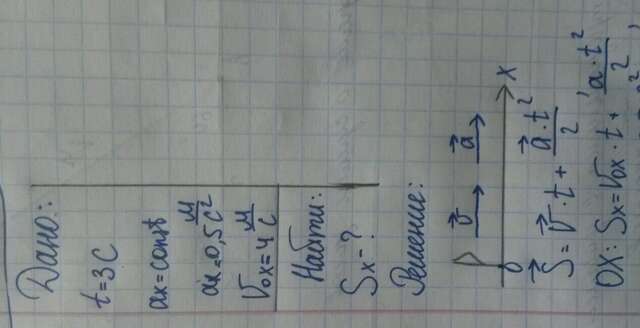 Дано:
t=3С
ax=const
ax=0,5 м/с²
V₀x=4 м/с
Найти:
Sx-?
Решение:
v⃗ a⃗
0 X
S⃗=v⃗·t+ a⃗·t²/2
OX: Sx=V₀x·t+ a·t²/2